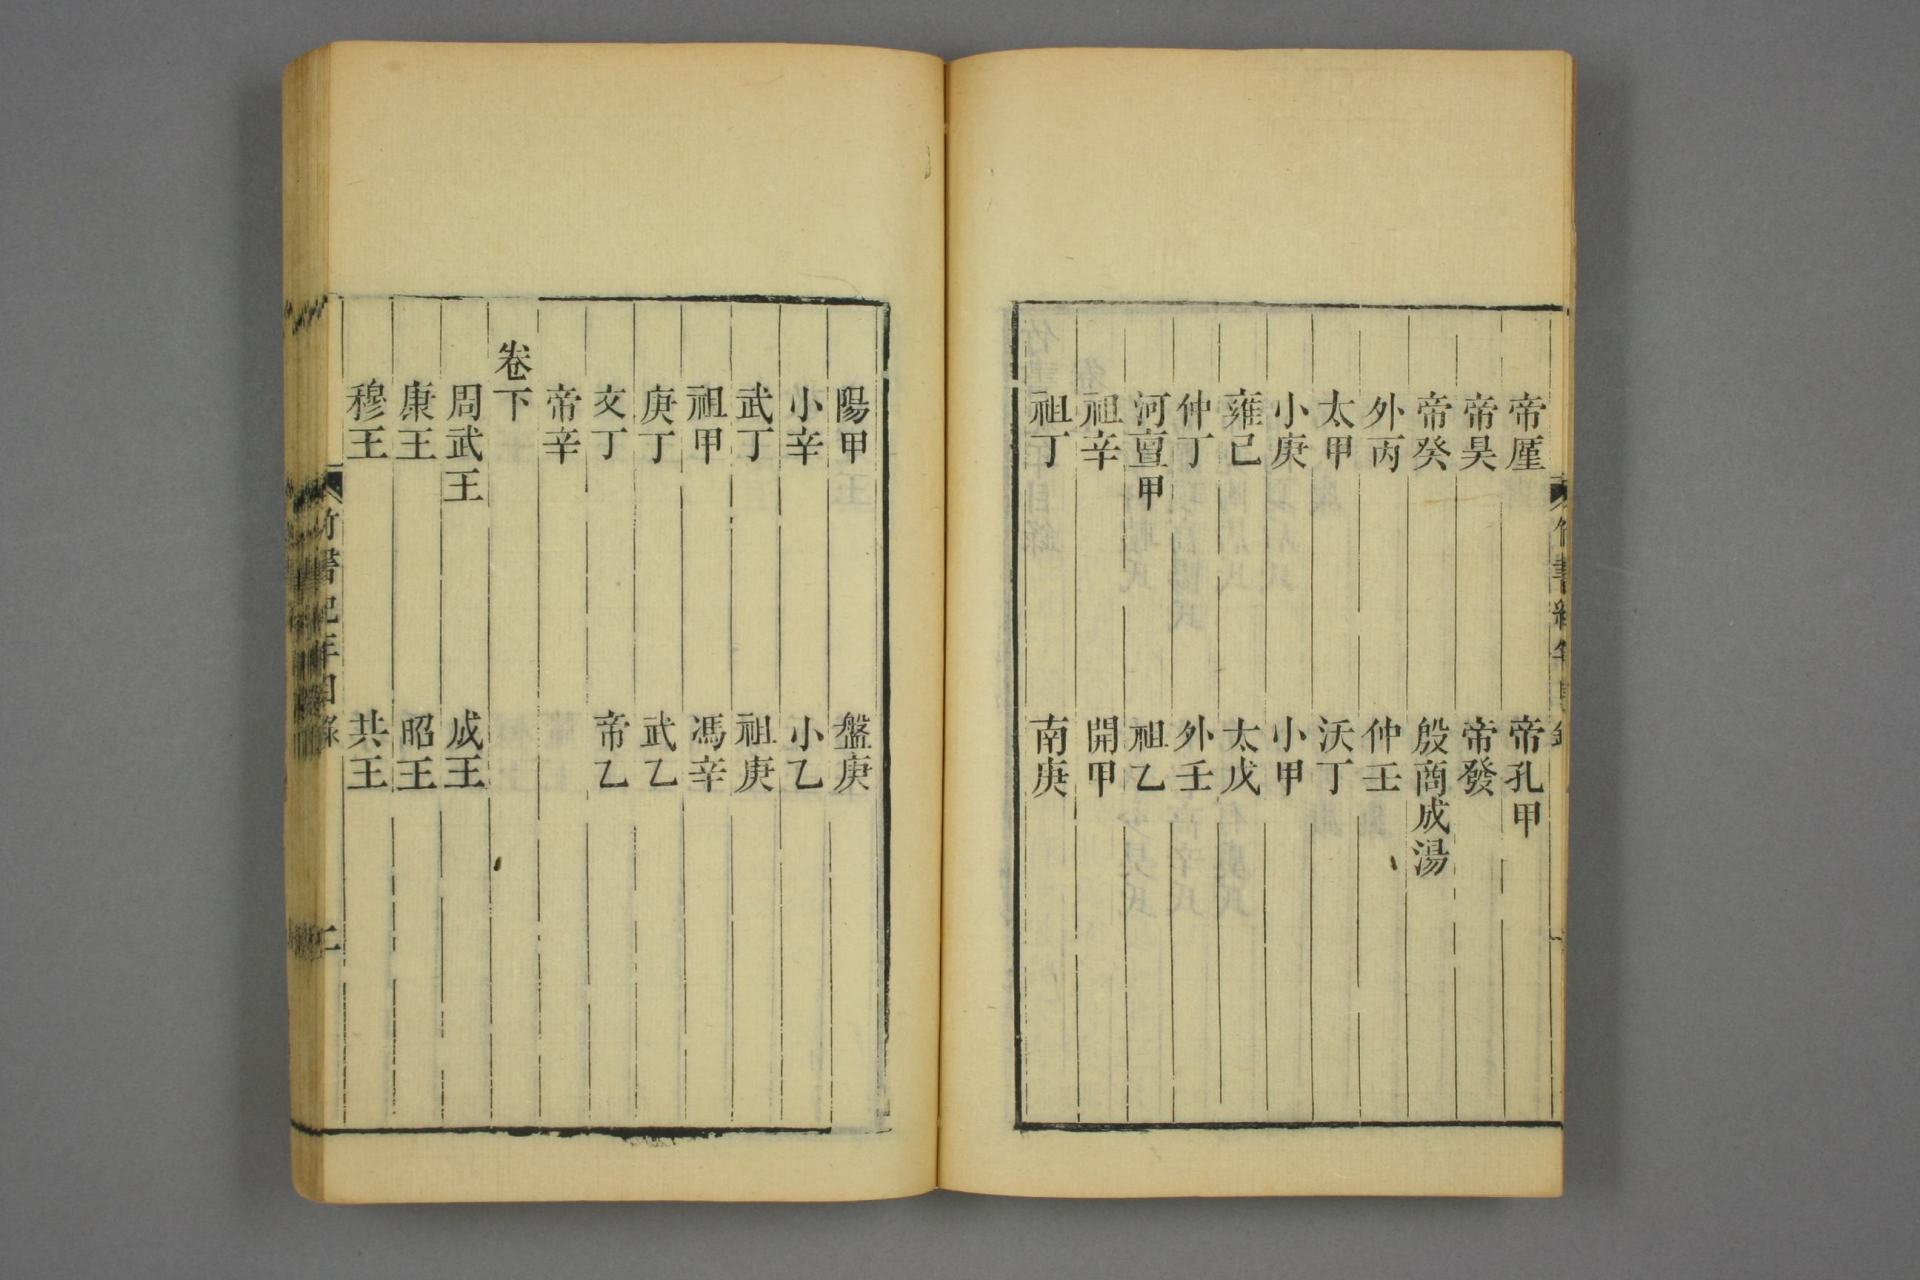 帝厪 帝孔甲
帝昊 帝發
帝癸 殷商成湯
外丙 仲壬
太甲 沃丁
小庚 小甲
雍己 太戊
仲丁 外壬
河亶甲 祖乙
祖辛 開甲
祖丁 南庚
陽甲 盤庚
小辛 小乙
武丁 祖庚
祖甲 馮辛
庚丁 武乙
文丁 帝乙
帝辛
卷下
周武王 成王
康王 昭王
穆王 共王
竹書紀年目錄 二